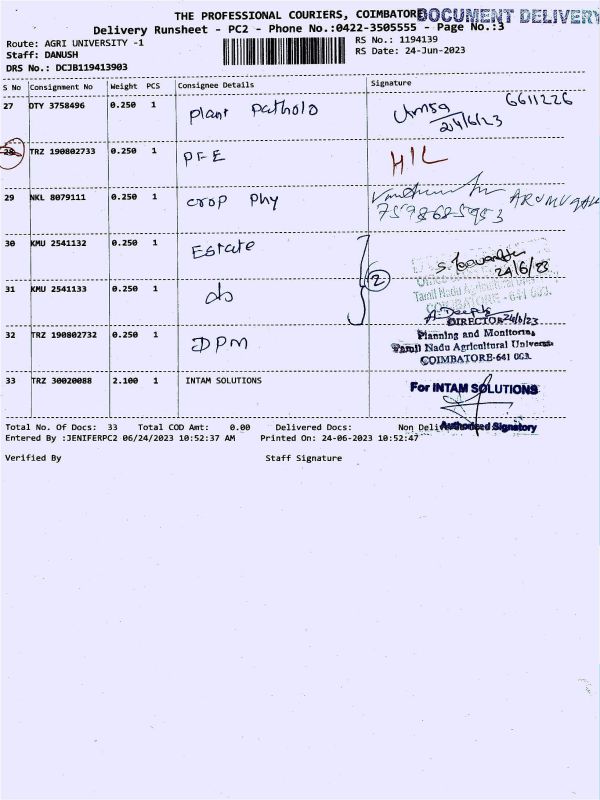 THE PROFESSIONAL COURIERS, COIMBATOR
DOCUMENT DELIVERY
Delivery Runsheet - PC2 - Phone No.:0422-3505555 - Page No.:3
Route: AGRI UNIVERSITY -1
RS No.: 1194139
Staff: DANUSH
RS Date: 24-Jun-2023
DRS No.: DCJB119413903
S No Consignment No Weight PCS Consignee Details Signature
27 DTY 3758496 0.250 1 plant Patholo 6611226
24/6/23
28 TRZ 190802733 0.250 1 PFE HIL
29 NKL 8079111 0.250 1 crop Phy ARUMUGAM
7598685953
30 KMU 2541132 0.250 1 Estate
24/6/23
Tamil Nadu Agricultural
COIMBATORE - 641 003.
31 KMU 2541133 0.250 1 do 2
A. Deepa
DIRECTOR 24/6/23
32 TRZ 190802732 0.250 1 DPM
Planning and Monitoring
Tamil Nadu Agricultural Univers
COIMBATORE-641 003.
33 TRZ 30020088 2.100 1 INTAM SOLUTIONS
For INTAM SOLUTIONS
Authorised Signatory
Total No. Of Docs: 33 Total COD Amt: 0.00 Delivered Docs: Non Deli
Entered By :JENIFERPC2 06/24/2023 10:52:37 AM Printed On: 24-06-2023 10:52:47
Verified By Staff Signature